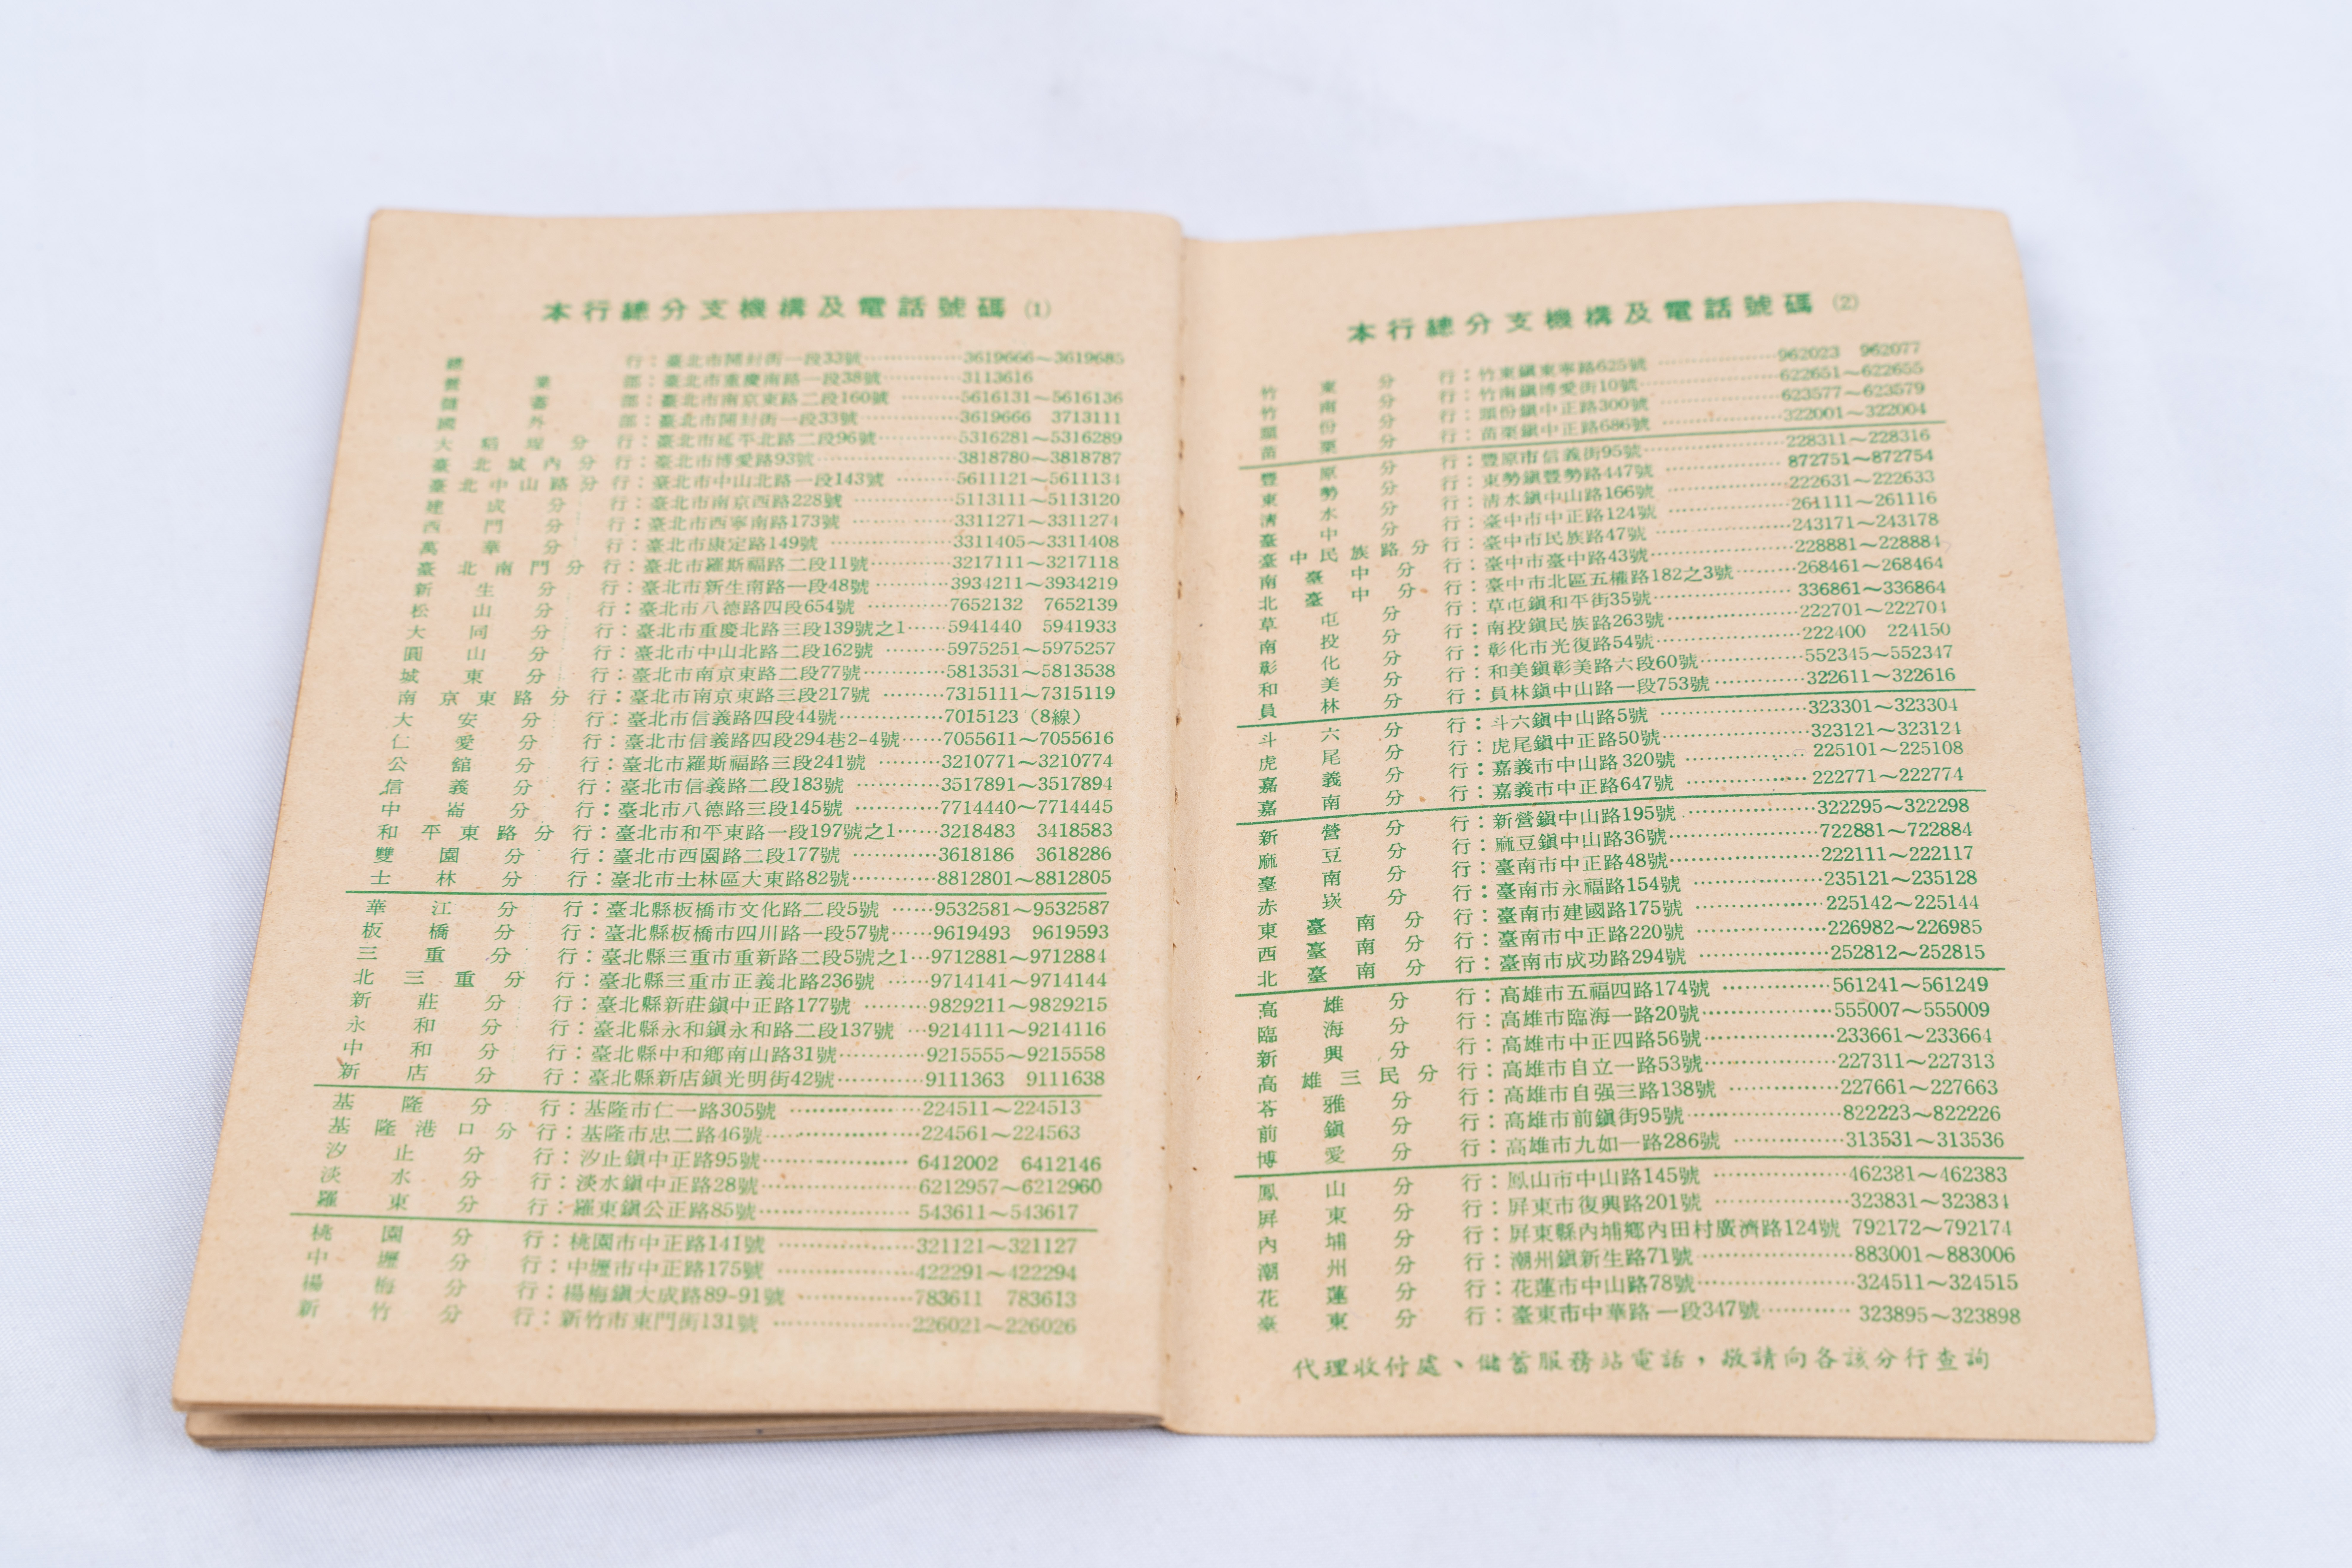 本行總分支機構及電話號碼 (1)
總行：臺北市開封街一段33號…………3619666～3619685
營業部：臺北市重慶南路一段38號…………3113616
儲蓄部：臺北市南京東路二段160號………5616131～5616136
國外部：臺北市開封街一段33號…………3619666 3713111
大稻埕分行：臺北市延平北路二段96號…………5316281～5316289
臺北城內分行：臺北市博愛路93號…………3818780～3818787
臺北中山路分行：臺北市中山北路一段143號………5611121～5611134
建成分行：臺北市南京西路228號…………5113111～5113120
西門分行：臺北市西寧南路173號…………3311271～3311274
萬華分行：臺北市康定路149號…………3311405～3311408
臺北南門分行：臺北市羅斯福路二段11號…………3217111～3217118
新生分行：臺北市新生南路一段48號…………3934211～3934219
松山分行：臺北市八德路四段654號…………7652132 7652139
大同分行：臺北市重慶北路三段139號之1……5941440 5941933
圓山分行：臺北市中山北路二段162號………5975251～5975257
城東分行：臺北市南京東路二段77號…………5813531～5813538
南京東路分行：臺北市南京東路三段217號………7315111～7315119
大安分行：臺北市信義路四段44號…………7015123（8線）
仁愛分行：臺北市信義路四段294巷2-4號……7055611～7055616
公館分行：臺北市羅斯福路三段241號………3210771～3210774
信義分行：臺北市信義路二段183號…………3517891～3517894
中崙分行：臺北市八德路三段145號…………7714440～7714445
和平東路分行：臺北市和平東路一段197號之1……3218483 3418583
雙園分行：臺北市西園路二段177號…………3618186 3618286
士林分行：臺北市士林區大東路82號…………8812801～8812805
華江分行：臺北縣板橋市文化路二段5號……9532581～9532587
板橋分行：臺北縣板橋市四川路一段57號……9619493 9619593
三重分行：臺北縣三重市重新路二段5號之1…9712881～9712884
北三重分行：臺北縣三重市正義北路236號………9714141～9714144
新莊分行：臺北縣新莊鎮中正路177號………9829211～9829215
永和分行：臺北縣永和鎮永和路二段137號…9214111～9214116
中和分行：臺北縣中和鄉南山路31號…………9215555～9215558
新店分行：臺北縣新店鎮光明街42號…………9111363 9111638
基隆分行：基隆市仁一路305號…………224511～224513
基隆港口分行：基隆市忠二路46號…………224561～224563
汐止分行：汐止鎮中正路95號…………6412002 6412146
淡水分行：淡水鎮中正路28號…………6212957～6212960
羅東分行：羅東鎮公正路85號…………543611～543617
桃園分行：桃園市中正路141號…………321121～321127
中壢分行：中壢市中正路175號…………422291～422294
楊梅分行：楊梅鎮大成路89-91號…………783611 783613
新竹分行：新竹市東門街131號…………226021～226026
本行總分支機構及電話號碼 (2)
竹東分行：竹東鎮東寧路625號…………962023 962077
竹南分行：竹南鎮博愛街10號…………622651～622655
頭份分行：頭份鎮中正路300號…………623577～623579
苗栗分行：苗栗鎮中正路686號…………322001～322004
豐原分行：豐原市信義街95號…………228311～228316
東勢分行：東勢鎮豐勢路447號…………872751～872754
清水分行：清水鎮中山路166號…………222631～222633
臺中分行：臺中市中正路124號…………261111～261116
臺中民族路分行：臺中市民族路47號…………243171～243178
南臺中分行：臺中市臺中路43號…………228881～228884
北臺中分行：臺中市北區五權路182之3號………268461～268464
草屯分行：草屯鎮和平街35號…………336861～336864
南投分行：南投鎮民族路263號…………222701～222704
彰化分行：彰化市光復路54號…………222400 224150
和美分行：和美鎮彰美路六段60號…………552345～552347
員林分行：員林鎮中山路一段753號…………322611～322616
斗六分行：斗六鎮中山路5號…………323301～323304
虎尾分行：虎尾鎮中正路50號…………323121～323124
嘉義分行：嘉義市中山路320號…………225101～225108
嘉南分行：嘉義市中正路647號…………222771～222774
新營分行：新營鎮中山路195號…………322295～322298
麻豆分行：麻豆鎮中山路36號…………722881～722884
臺南分行：臺南市中正路48號…………222111～222117
赤崁分行：臺南市永福路154號…………235121～235128
東臺南分行：臺南市建國路175號…………225142～225144
西臺南分行：臺南市中正路220號…………226982～226985
北臺南分行：臺南市成功路294號…………252812～252815
高雄分行：高雄市五福四路174號…………561241～561249
臨海分行：高雄市臨海一路20號…………555007～555009
新興分行：高雄市中正四路56號…………233661～233664
高雄三民分行：高雄市自立一路53號…………227311～227313
苓雅分行：高雄市自强三路138號…………227661～227663
前鎮分行：高雄市前鎮街95號…………822223～822226
博愛分行：高雄市九如一路286號…………313531～313536
鳳山分行：鳳山市中山路145號…………462381～462383
屏東分行：屏東市復興路201號…………323831～323834
內埔分行：屏東縣內埔鄉內田村廣濟路124號 792172～792174
潮州分行：潮州鎮新生路71號…………883001～883006
花蓮分行：花蓮市中山路78號…………324511～324515
臺東分行：臺東市中華路一段347號…………323895～323898
代理收付處、儲蓄服務站電話，敬請向各該分行查詢